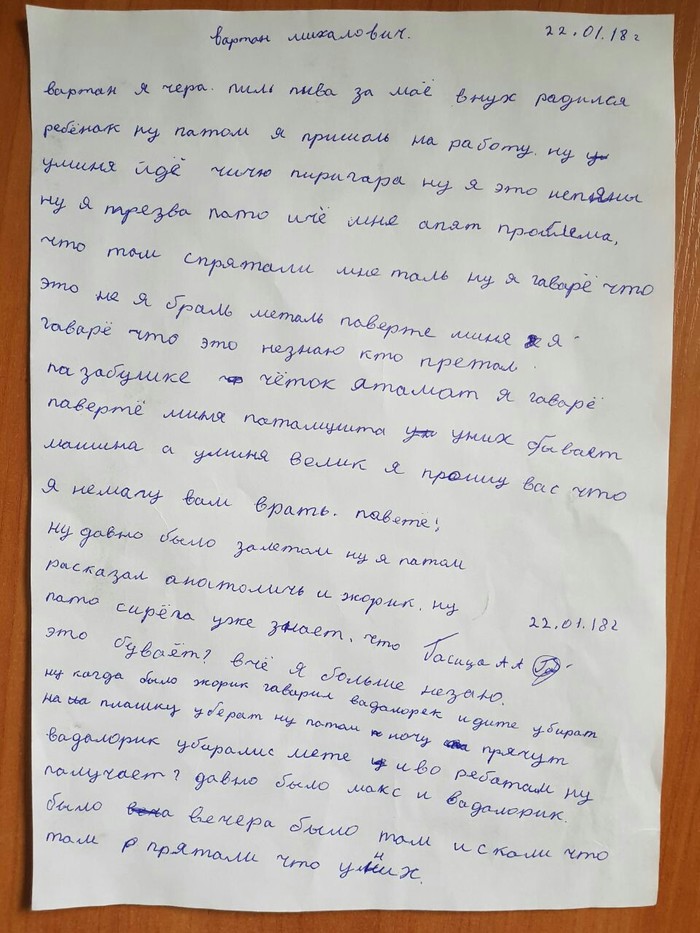 вартан михалович.
22.01.18г
вартан я чера. пиль пыва за маё внух радился
ребёнак ну патом я пришоль на работу. ну
уминя йдё чичю пиригара ну я это непяны
ну я трезва пато ичё мне апят проблема,
что там спрятали мне таль ну я гаварё что
это не я браль металь паверте миня я
гаварё что это незнаю кто претал
па забушке чёток атамат я гаварё
павертё миня паталушта уних бывает
машина а уминя велик я прошу вас что
я немагу вам врать. паветё!
ну давно было залетам ну я патам
расказал анатоличь и жорик. ну
пато сирёга уже знает. что
22.01.18г
Басица А А
это буваёт? вчё я больше незаю.
ну кагда было жорик гаварил вадалорек идите убират
на плашку уберат ну патам ночу прячут
вадалорик убиралис мете иво ребатам ну
палучает? давно было макс и вадалорик.
было вечера было там искали что
там прятали что уних.